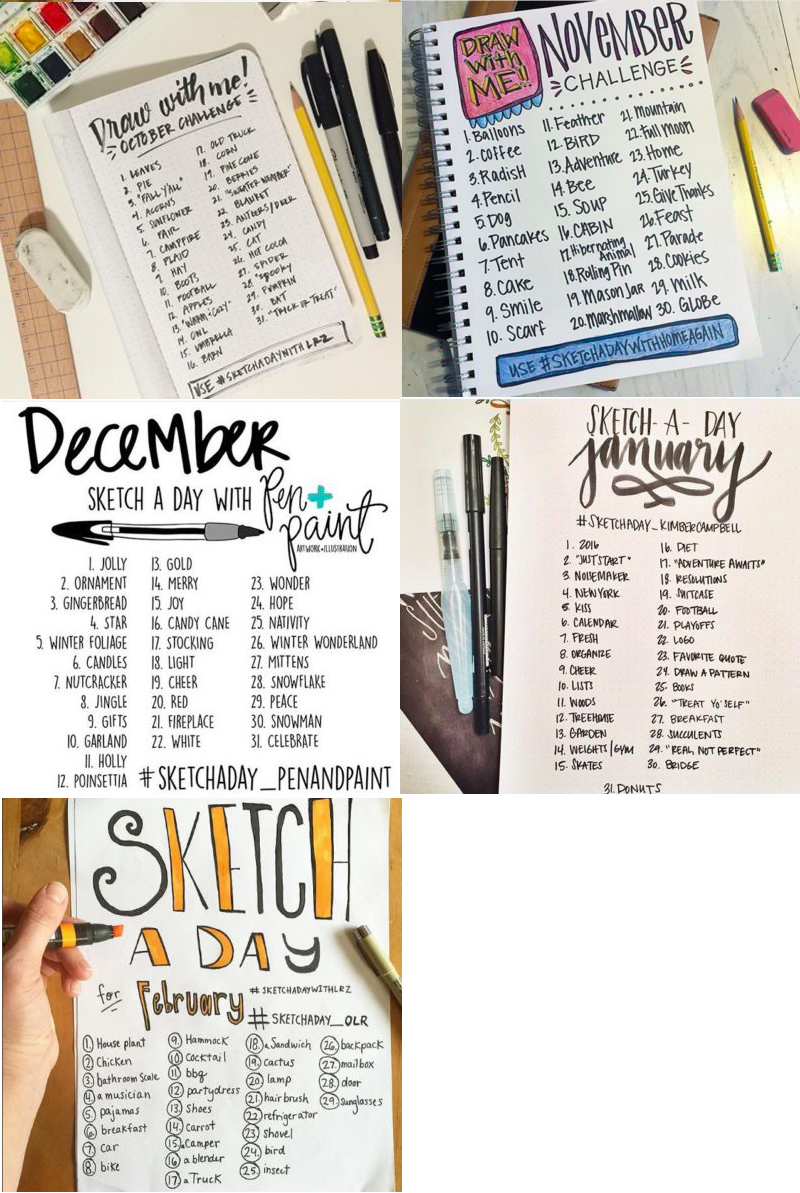 Draw with me!
OCTOBER CHALLENGE
1. LEAVES
2. PIE
3. "FALL Y'ALL"
4. ACORNS
5. SUNFLOWER
6. FAIR
7. CAMPFIRE
8. PLAID
9. HAY
10. BOOTS
11. FOOTBALL
12. APPLES
13. "WARM + COZY"
14. OWL
15. UMBRELLA
16. BARN
17. OLD TRUCK
18. CORN
19. PINECONE
20. BERRIES
21. "SWEATER WEATHER"
22. BLANKET
23. ANTLERS/DEER
24. CANDY
25. CAT
26. HOT COCOA
27. SPIDER
28. "SPOOKY"
29. PUMPKIN
30. BAT
31. "TRICK OR TREAT"
USE #SKETCHADAYWITHLRZ
DRAW
with
ME!!
NOVEMBER
CHALLENGE
1. Balloons
2. Coffee
3. Radish
4. Pencil
5. Dog
6. Pancakes
7. Tent
8. Cake
9. Smile
10. Scarf
11. Feather
12. BiRD
13. Adventure
14. Bee
15. SOUP
16. CABIN
17. Hibernating
Animal
18. Rolling Pin
19. Mason Jar
20. Marshmallow
21. Mountain
22. Full Moon
23. Home
24. Turkey
25. Give Thanks
26. Feast
27. Parade
28. Cookies
29. Milk
30. GloBe
USE #SKETCHADAYWITHHOMEAGAIN
DeceMbeR
SKETCH A DAY WITH Pen +
paint
ARTWORK+ILLUSTRATION
1. JOLLY
2. ORNAMENT
3. GINGERBREAD
4. STAR
5. WINTER FOLIAGE
6. CANDLES
7. NUTCRACKER
8. JINGLE
9. GIFTS
10. GARLAND
11. HOLLY
12. POINSETTIA
13. GOLD
14. MERRY
15. JOY
16. CANDY CANE
17. STOCKING
18. LIGHT
19. CHEER
20. RED
21. FIREPLACE
22. WHITE
23. WONDER
24. HOPE
25. NATIVITY
26. WINTER WONDERLAND
27. MITTENS
28. SNOWFLAKE
29. PEACE
30. SNOWMAN
31. CELEBRATE
#SKETCHADAY_PENANDPAINT
SKETCH-A-DAY
january
#SKETCHADAY_KIMBERCAMPBELL
1. 2016
2. "JUST START"
3. NOISEMAKER
4. NEW YORK
5. KISS
6. CALENDAR
7. FRESH
8. ORGANIZE
9. CHEER
10. LISTS
11. WOODS
12. TREEHOME
13. GARDEN
14. WEIGHTS/GYM
15. SKATES
16. DIET
17. "ADVENTURE AWAITS"
18. RESOLUTIONS
19. SUITCASE
20. FOOTBALL
21. PLAYOFFS
22. LOGO
23. FAVORITE QUOTE
24. DRAW A PATTERN
25. BOOKS
26. "TREAT YO' SELF"
27. BREAKFAST
28. SUCCULENTS
29. "REAL NOT PERFECT"
30. BRIDGE
31. DONUTS
SKETCH
A DAY
for February
#SKETCHADAYWITHLRZ
#SKETCHADAY_OLR
1 House plant
2 Chicken
3. bathroom Scale
4. a musician
5. pajamas
6. breakfast
7. car
8. bike
9. Hammock
10 Cocktail
11 bbq
12 party dress
13. Shoes
14. Carrot
15. Camper
16 a blender
17. a Truck
18. a Sandwich
19. cactus
20. lamp
21. hair brush
22 refrigerator
23. shovel
24. bird
25. insect
26. backpack
27. mailbox
28. door
29. sunglasses